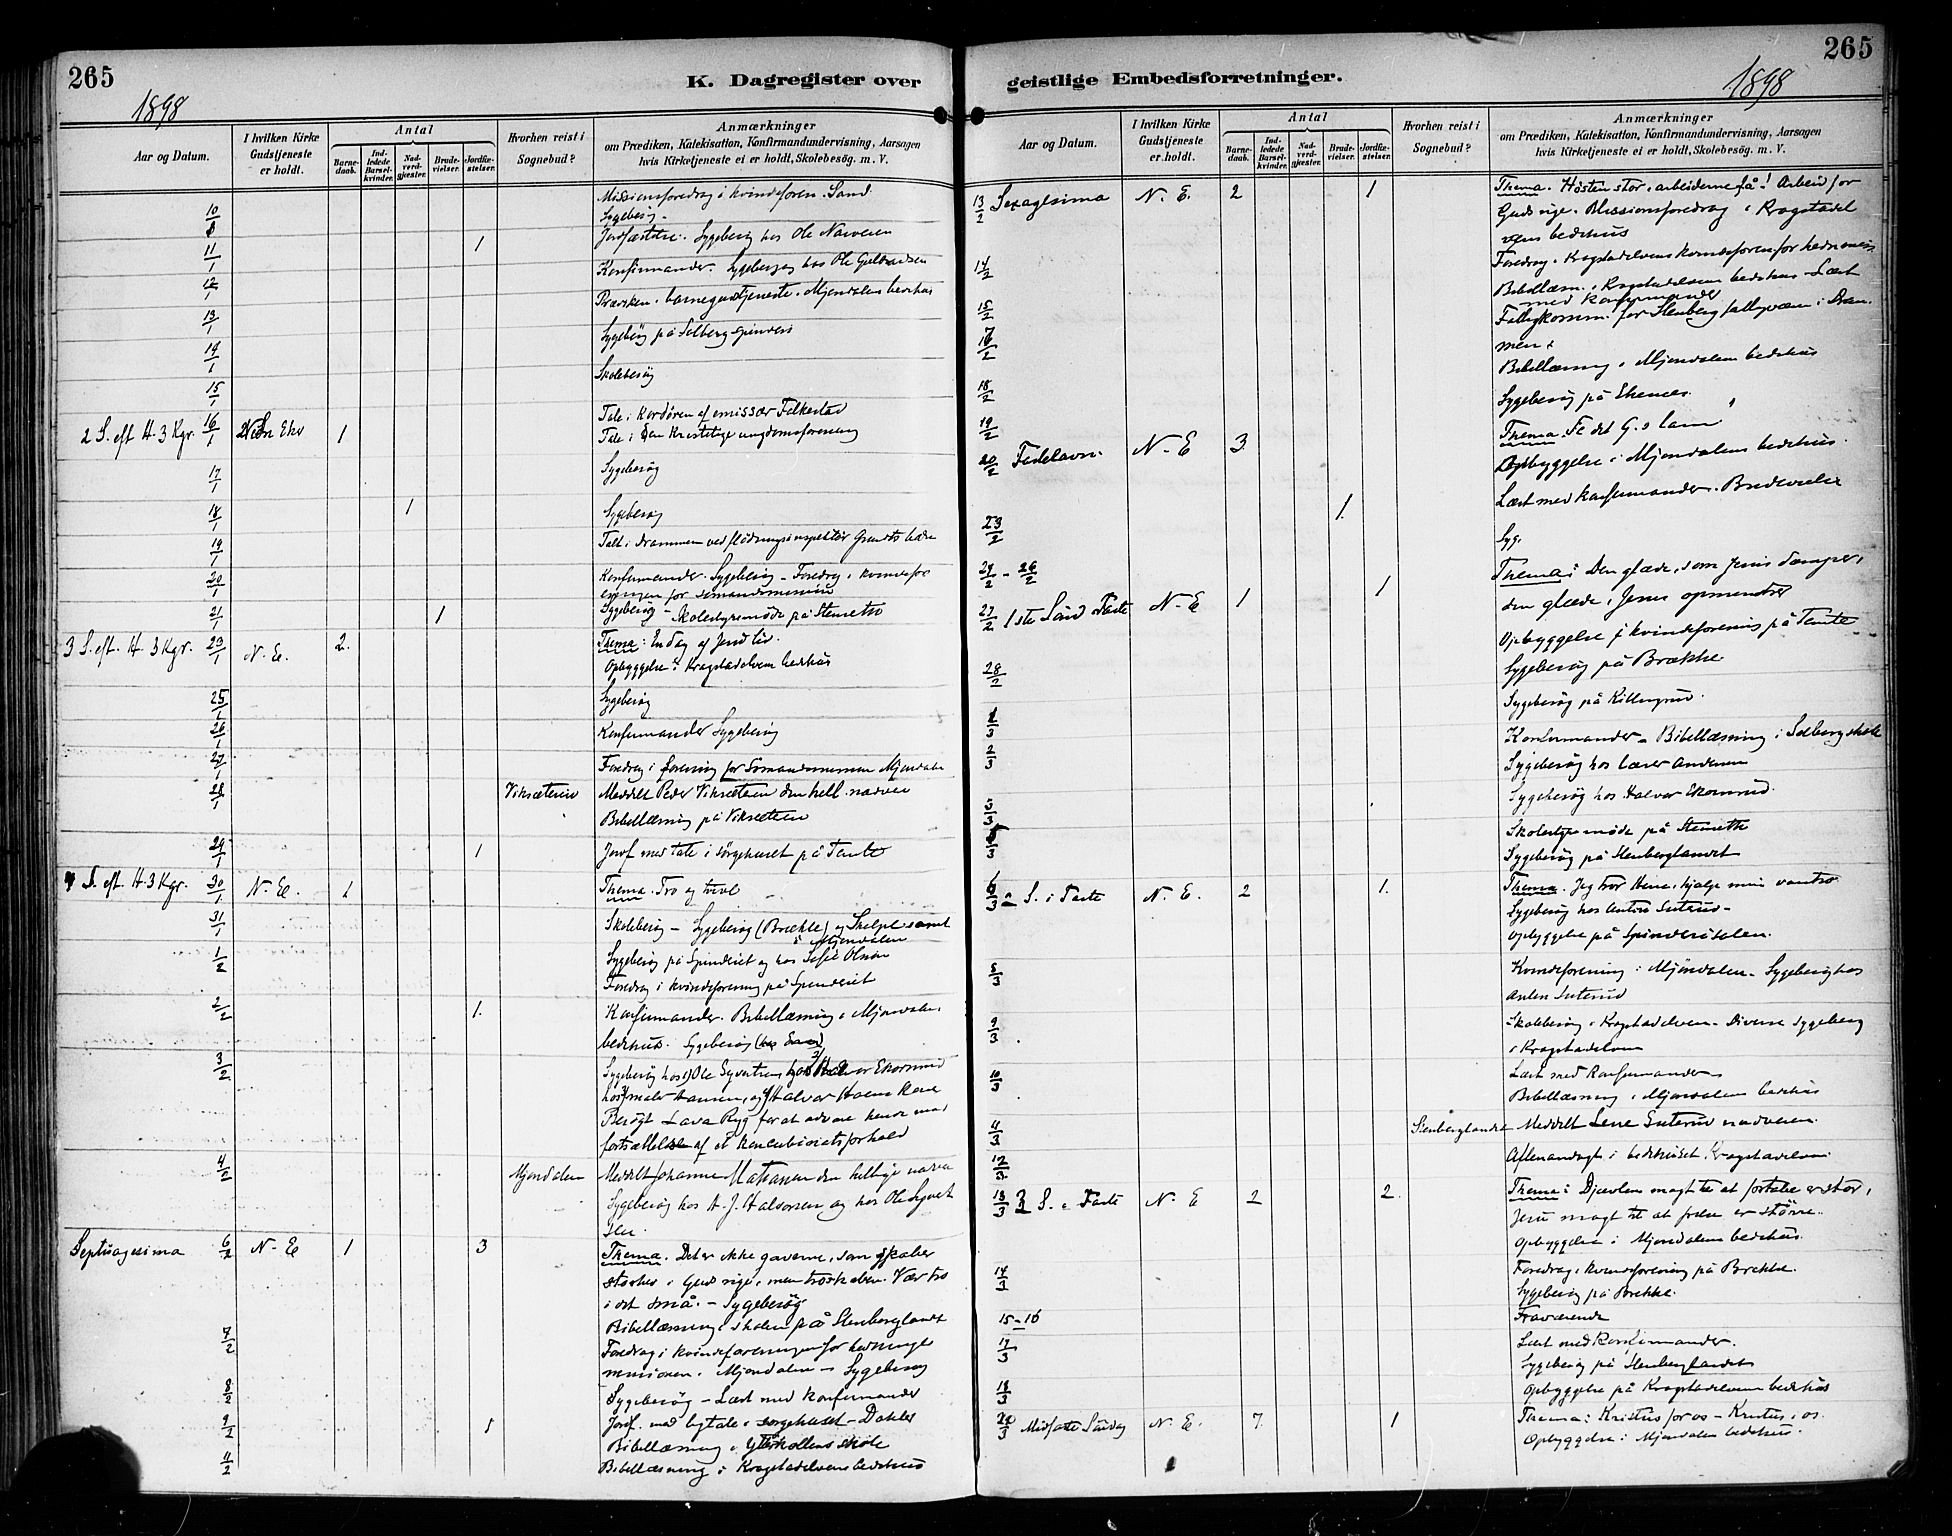 265
K. Dagregister over
1898
Aar og Datum.
I hvilken Kirke Gudstjeneste er holdt.
Antal
Barnedaab.
Indledede Barselkvinder.
Nadverdgjester.
Brudevielser.
Jordfæstelser.
Hvorhen reist i Sognebud?
Anmærkninger
om Prædiken, Katekisation, Konfirmandundervisning, Aarsagen
hvis Kirketjeneste ei er holdt, Skolebesög. m. V.
10/1 Missionsforedrag i kvindeforen. Sand
Sygebesøg.
11/1 1 Jordfæstelse. Sygebesög hos Ole Narveren
12/1 Konfirmander. Sygebesög hos Ole
13/1 Præken. barnegudstjeneste. Mjøndalens bedehus
14/1 Sygebesög på Solberg spinderi
15/1 Skolebesög
2 S. eft H. 3 Kgr. 16/1 Eker 1 Tale i af emissær Falkestad
Tale i Den Kristelige ungdomsforening
17/1 Sygebesøg
18/1 1 Sygebesøg
19/1 Talt i Drammen ved
20/1 Konfirmander. Sygebesög – Foredrag i kvindefor
eningen for sömandsmission
21/1 1 Sygebesög – Skolestyremöde på Stenseth
3 S. eft. H. 3 Kgr. 23/1 N. E. 2. Thema: En dag af Jesu liv.
Opbyggelse i Krogstadelvens bedehus
25/1 Sygebesög
26/1 Konfirmander Sygebesög
27/1 Foredrag i forening for Sömandsmission Mjøndalen
28/1 Viksæteren Meddelt Peder Viksæteren den hell. nadver
Bibellæsning på Viksæteren
29/1 1 Jordf. med tale i sørgehuset på Tante
4 S. eft. H. 3 Kgr. 30/1 N. E. 1 Thema. Tro og tvivl
31/1 Skolebesög – Sygebesög (Brække) og samt
i Mjøndalen
1/2 Sygebesög på Spinderiet og hos Sofie Olsen
Foredrag i kvindeforening på Spinderiet
2/2 1. Konfirmander. Bibellæsning i Mjøndalens
bedehus. Sygebesøg
3/2 Sygebesög hos 1) Ole Syvertsen hos Halvor Ekornrud
hos maler Hansen, og Halvor
Besögt Lava Ryg for at advare hende mod
fortsættelse af et konkubinatsforhold
4/2 Mjøndalen Meddelt Johanne den hellige nadver
Sygebesög hos H. J. Halvorsen og hos Ole Syvert
sen.
Septuagesima 6/2 N. E 1 3 Thema. Det er ikke gaverne, som skaber
storhed i Guds rige, men troskaben. Vær tro
i det små. – Sygebesøg
7/2 Bibellæsning i skolen på Stenberglandet
Foredrag i kvindeforeningen for hedninge
missionen i Mjøndalen – Sygebesög
8/2 Sygebesøg – Læst med konfirmander
9/2 1 Jordf. med ligtale i sørgehuset – Dahler
Bibellæsning i Ytterkollens skole
11/2 Bibellæsning i Krogstadelvens bedehus
265
geistlige Embedsforretninger.
1898
Aar og Datum.
I hvilken Kirke Gudstjeneste er holdt.
Antal
Barnedaab.
Indledede Barselkvinder.
Nadverdgjester.
Brudevielser.
Jordfæstelser.
Hvorhen reist i Sognebud?
Anmærkninger
om Prædiken, Katekisation, Konfirmandundervisning, Aarsagen
hvis Kirketjeneste ei er holdt, Skolebesög. m. V.
13/2 Sexagesima N. E. 2 1 Thema. Hösten stor, arbeiderne få! Arbeid for
Guds rige. Missionsforedrag i Krogstadel
vens bedehus
14/2 Foredrag i Krogstadelvens kvindeforen for hedn.mis.
Bibellæsn. i Krogstadelvens bedehus – Læst
med konfirmander
15/2 Fattigkomm. for Stenberg fattigvæsen i Dram
men.
16/2 Bibellæsning i Mjøndalens bedehus
18/2 Sygebesög på Ekenes.
19/2 "
20/2 Fastelavn. N. E 3. Thema. Se det G.s lam
Opbyggelse i Mjøndalens bedehus.
23/2 1. Læst med konfirmander. Brudevielse
24/2 – 26/2 Syg.
27/2 1ste Sönd Faste N. E 1 1 Thema: Den glæde, som Jesus dæmper,
den glæde, Jesus opmuntrer
Opbyggelse i kvindeforening på Tante
28/2 Sygebesög på Brække
1/3 Sygebesög på Killingrud.
2/3 Konfirmander – Bibellæsning i Solberg skole
Sygebesøg hos lærer Andersen
3/3 Sygebesøg hos Halvor Ekornrud.
Skolestyremöde på Stenseth
Sygebesøg på Stenberglandet
6/3 2 S. i Faste N. E. 2 1. Thema. Jeg tror Herre, hjælp min vantro
Sygebesøg hos Anton Suterud –
Opbyggelse på Spinderisalen.
8/3 Kvindeforening i Mjöndalen – Sygebesög hos
Anton Suterud
9/3 Skolebesög i Krogstadelven – Diverse Sygebesög
i Krogstadelven
10/3 Læst med Konfirmander
Bibellæsning i Mjøndalens bedehus
11/3 Stenberglandet Meddelt Lene Suterud nadveren.
12/3 Aftenandagt i bedehuset, Krogstadelven
13/3 3 S. i Faste N. E 2 2. Thema: Djævlens magt til at fortabe er stor,
Jesu magt til at frelse er större.
Opbyggelse i Mjøndalens bedehus.
14/3 Foredrag i kvindeforening på Brække.
Sygebesøg på Brekke.
15–16 Fraværende
17/3 Læst med Konfirmander.
Sygebesög på Stenberglandet
18/3 Opbyggelse på Krogstadelvens bedehus
20/3 Midfaste Söndag N. E. 7. 1 Thema: Kristus for os – Kristus i os.
Opbyggelse i Mjøndalens bedehus.